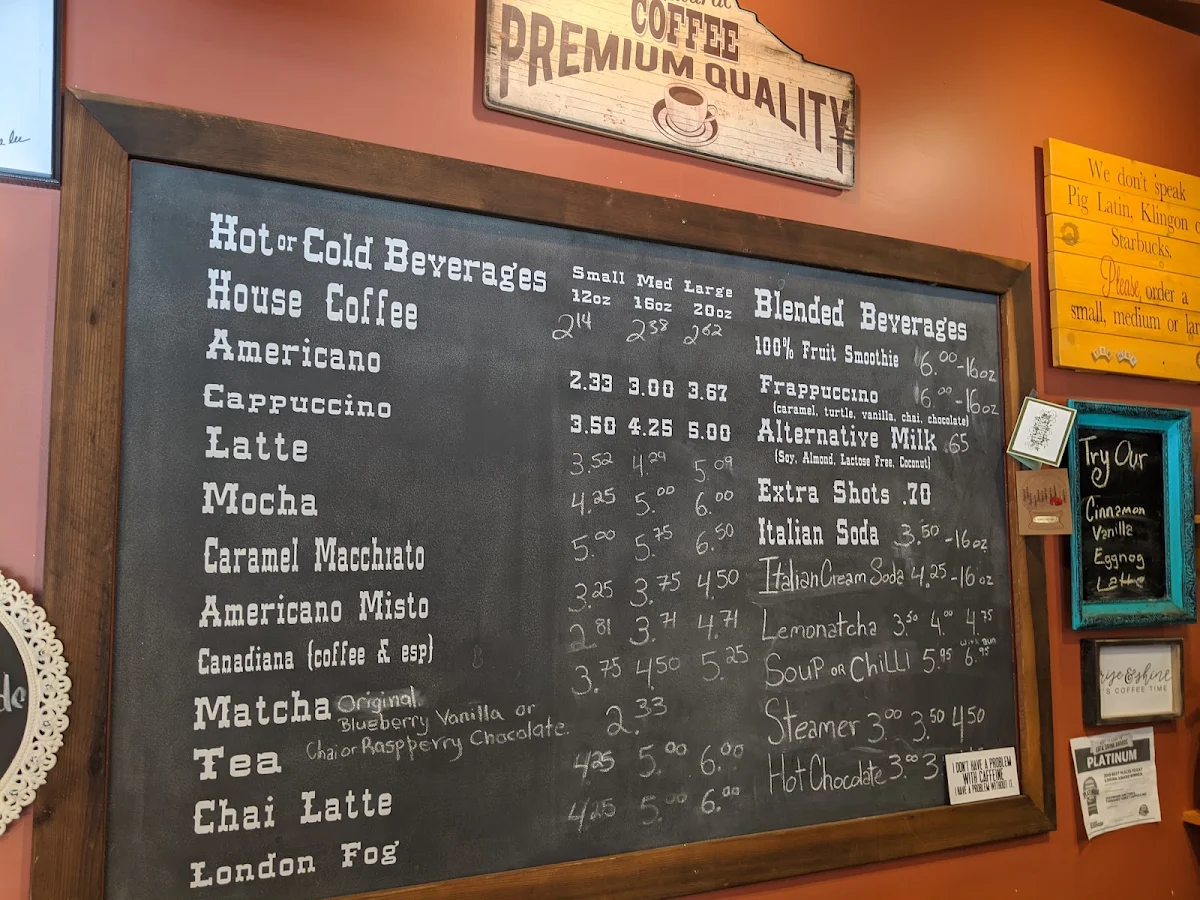 COFFEE
PREMIUM QUALITY
Hot or Cold Beverages
Small Med Large
12oz 16oz 20oz
House Coffee 2.14 2.38 2.62
Americano 2.33 3.00 3.67
Cappuccino 3.50 4.25 5.00
Latte 3.52 4.29 5.09
Mocha 4.25 5.00 6.00
Caramel Macchiato 5.00 5.75 6.50
Americano Misto 3.25 3.75 4.50
Canadiana (coffee & esp) 2.81 3.71 4.71
Matcha Original 3.75 4.50 5.25
Blueberry Vanilla or
Chai or Raspperry Chocolate.
Tea 2.33
Chai Latte 4.25 5.00 6.00
London Fog 4.25 5.00 6.00
Blended Beverages
100% Fruit Smoothie 6.00-16oz
Frappuccino 6.00-16oz
(caramel, turtle, vanilla, chai, chocolate)
Alternative Milk .65
(Soy, Almond, Lactose Free, Coconut)
Extra Shots .70
Italian Soda 3.50-16oz
Italian Cream Soda 4.25-16oz
Lemonatcha 3.50 4.00 4.75
Soup or Chilli 5.95 6.95
with Bun
Steamer 3.00 3.50 4.50
Hot Chocolate 3.00 3.
I DON'T HAVE A PROBLEM
WITH CAFFEINE
I HAVE A PROBLEM WITHOUT IT.
We don't speak
Pig Latin, Klingon
Starbucks.
Please order a
small, medium or
Try Our
Cinnamon
Vanilla
Eggnog
Latte
rise & shine
IT'S COFFEE TIME
PLATINUM